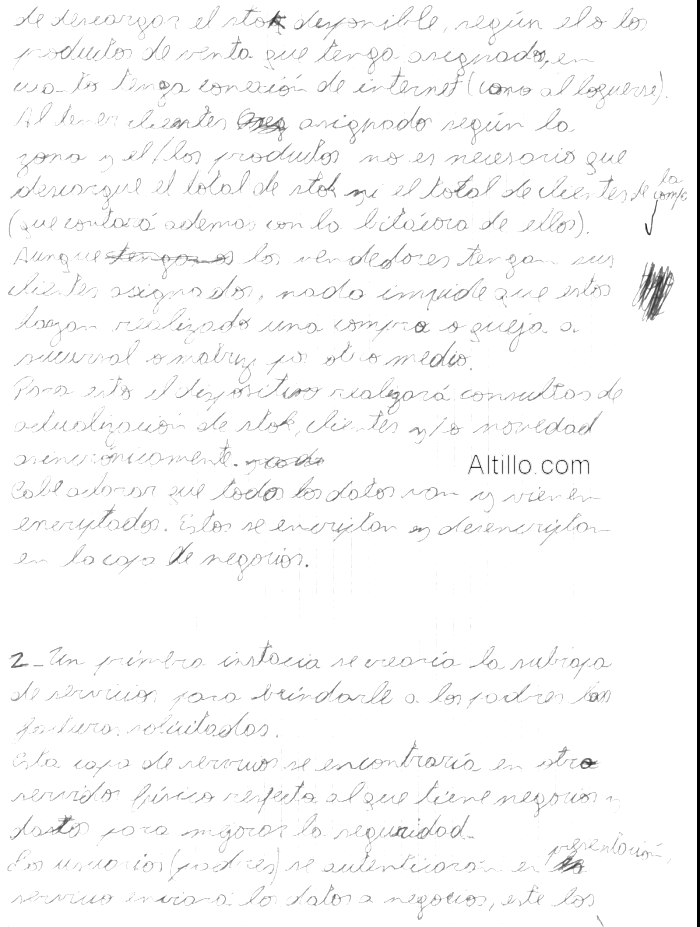 de descargar el stok disponible, según el o los
productos de venta que tenga asignado, en
cua_to tenga conexión de internet (como al loguerse).
Al tener clientes asignado según la
zona y el/los productos no es necesario que
descargue el total de stok ni el total de clientes de la comp
(que contará ademas con la bitácora de ellos).
Aunque los vendedores tengan sus
clientes asignados, nada impide que estos
hagan realizado una compra o queja a
sucursal o matriz por otro medio.
Para esto el dispositivo realizará consultas de
actualización de stok, clientes y/o novedad
asincrónicamente.
Altillo.com
Cabe aclarar que todos los datos van y vienen
encriptados. Estos se encriptan y desencriptan
en la capa de negocios.
2_ Un primera instacia se crearía la subcapa
de servicios para brindarle a los padres las
facturas solicitadas.
Esta capa de servicios se encontraría en otro
servidor físico respecto al que tiene negocios y
datos para mejorar la seguridad.
Los usuarios (padres) se autenticarán en presentación,
servicio enviará los datos a negocios, este los